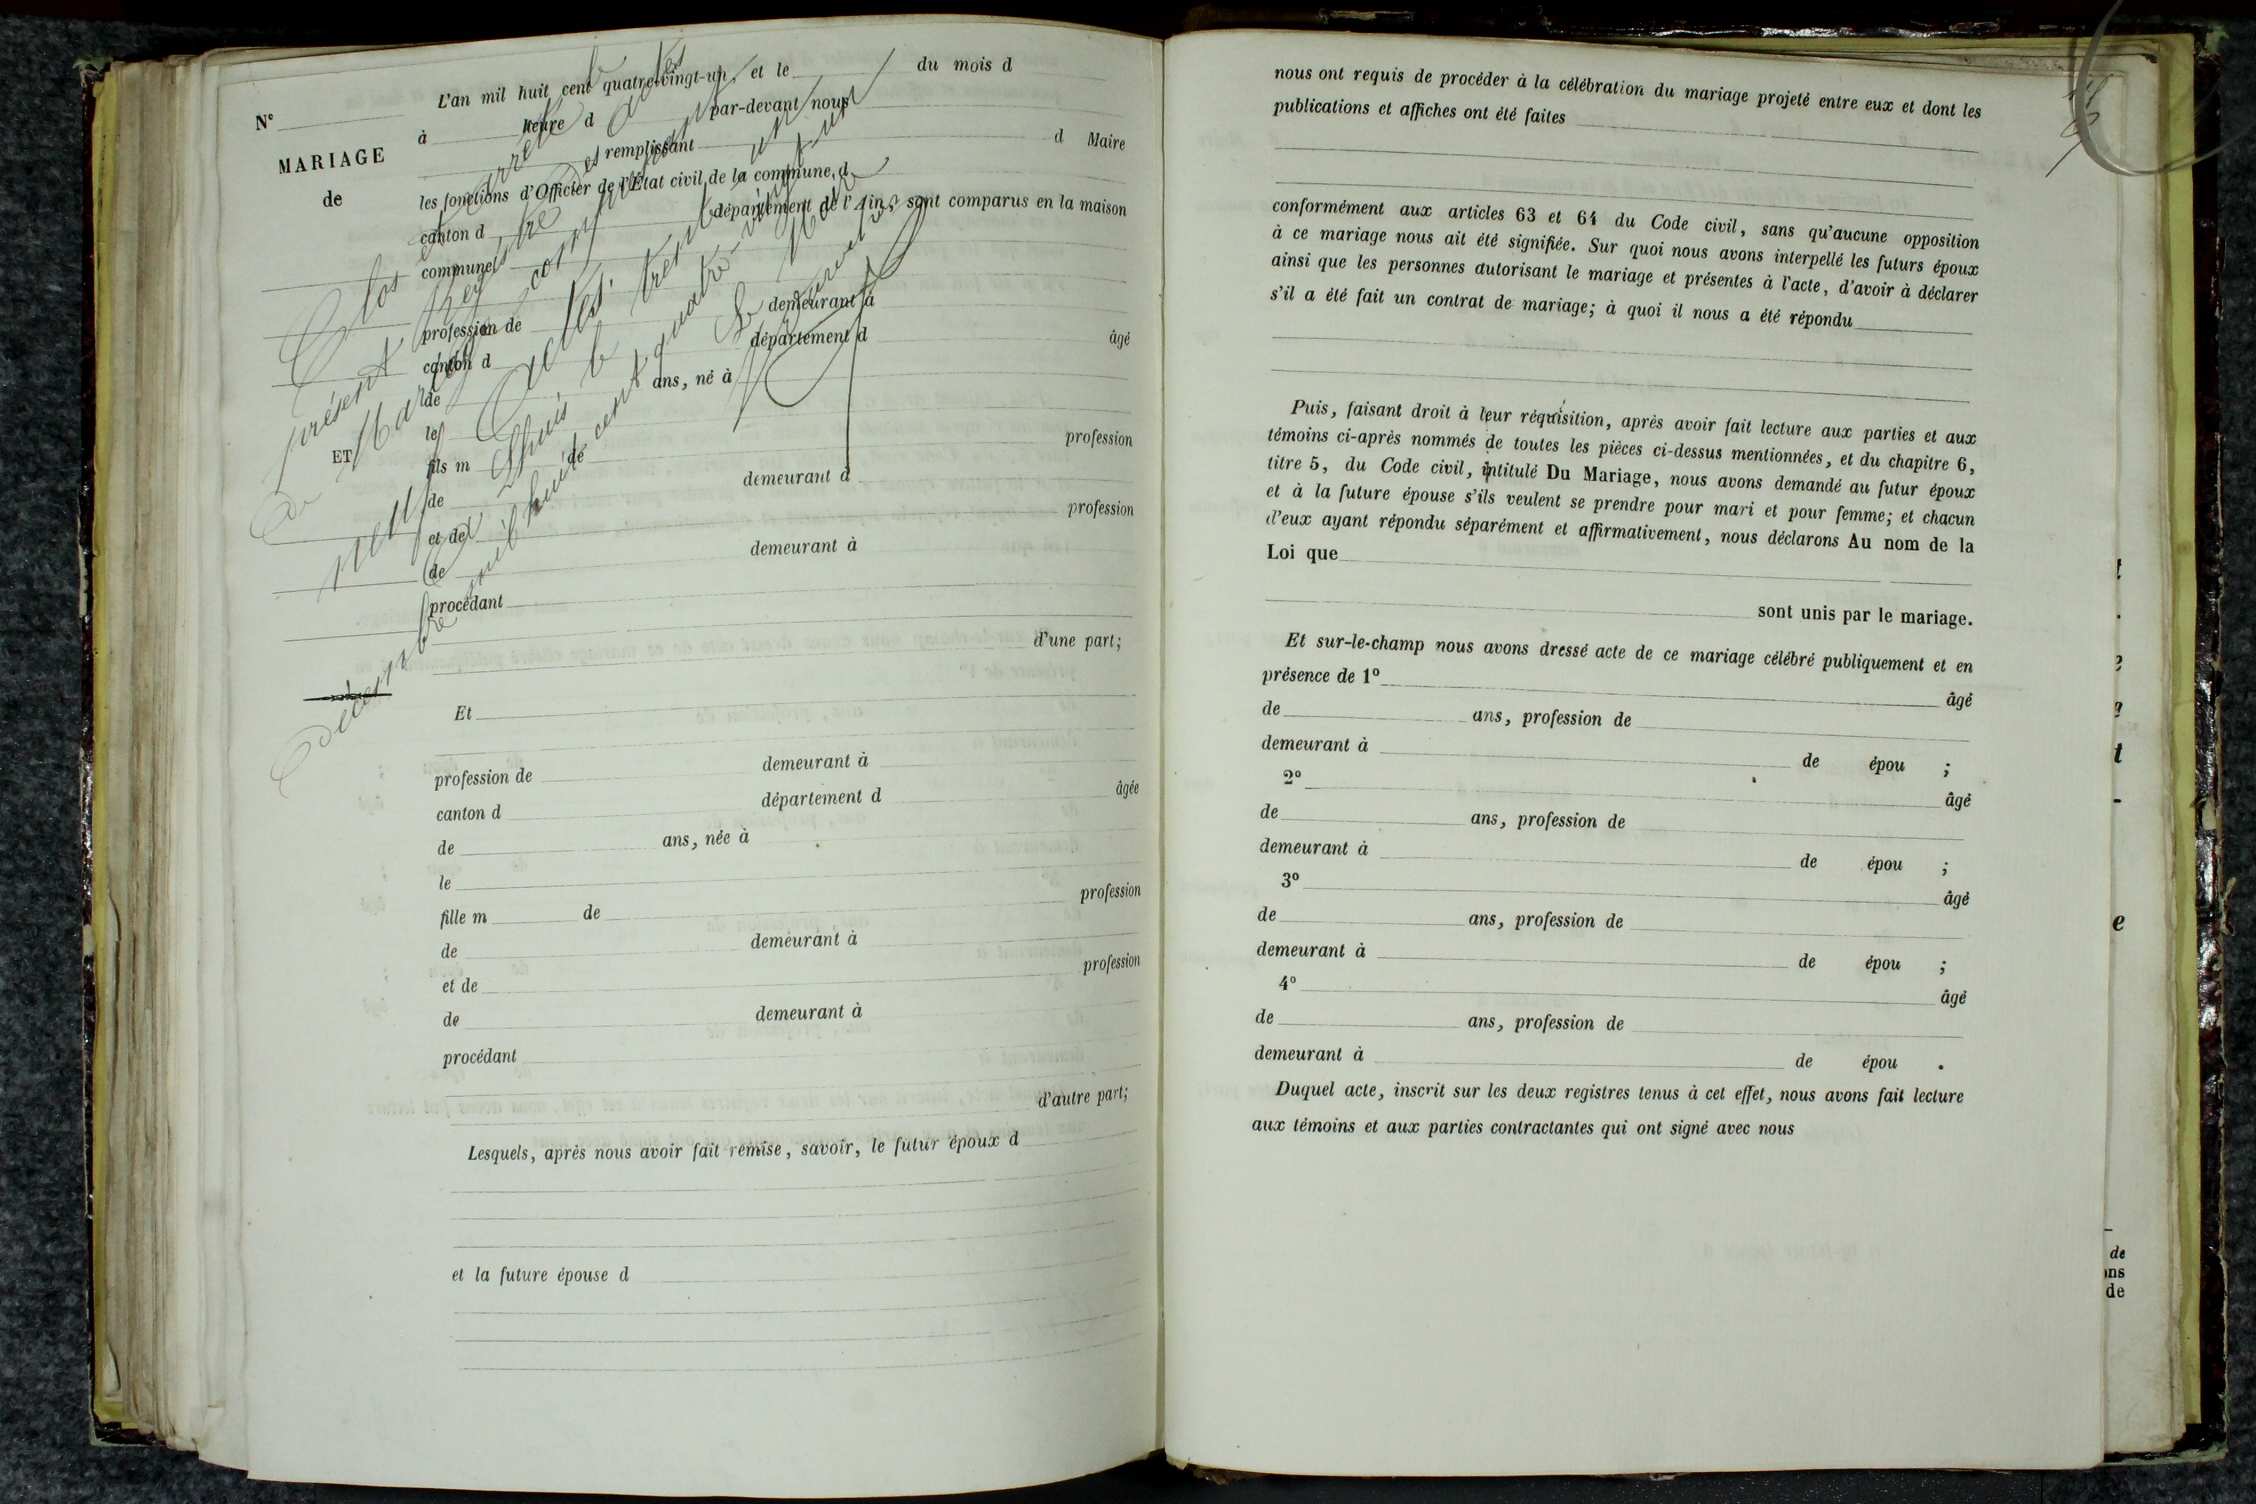 Clos et arrêté le
présent Registre des actes
de Mariage comprenant
neuf actes.
Ce trente un
décembre mil huit cent quatre-vingt-un
Le Maire
N°
MARIAGE
de
ET
L'an mil huit cent quatre-vingt-un, et le du mois d
à heure d par-devant nous
remplissant d Maire
les fonctions d'Officier de l'État civil de la commune d
canton d département de l'Ain, sont comparus en la maison
commune
profession de demeurant à
canton d département d âgé
de ans, né à
le
fils m de profession
de demeurant à
et de profession
de demeurant à
procédant
d'une part;
Et
profession de demeurant à
canton d département d âgée
de ans, née à
le
fille m de profession
de demeurant à
et de profession
de demeurant à
procédant
d'autre part;
Lesquels, après nous avoir fait remise, savoir, le futur époux d
et la future épouse d
nous ont requis de procéder à la célébration du mariage projeté entre eux et dont les
publications et affiches ont été faites
conformément aux articles 63 et 64 du Code civil, sans qu'aucune opposition
à ce mariage nous ait été signifiée. Sur quoi nous avons interpellé les futurs époux
ainsi que les personnes autorisant le mariage et présentes à l'acte, d'avoir à déclarer
s'il a été fait un contrat de mariage; à quoi il nous a été répondu
Puis, faisant droit à leur réquisition, après avoir fait lecture aux parties et aux
témoins ci-après nommés de toutes les pièces ci-dessus mentionnées, et du chapitre 6,
titre 5, du Code civil, intitulé Du Mariage, nous avons demandé au futur époux
et à la future épouse s'ils veulent se prendre pour mari et pour femme; et chacun
d'eux ayant répondu séparément et affirmativement, nous déclarons Au nom de la
Loi que
sont unis par le mariage.
Et sur-le-champ nous avons dressé acte de ce mariage célébré publiquement et en
présence de 1° âgé
de ans, profession de
demeurant à de épou ;
2° âgé
de ans, profession de
demeurant à de épou ;
3° âgé
de ans, profession de
demeurant à de épou ;
4° âgé
de ans, profession de
demeurant à de épou .
Duquel acte, inscrit sur les deux registres tenus à cet effet, nous avons fait lecture
aux témoins et aux parties contractantes qui ont signé avec nous